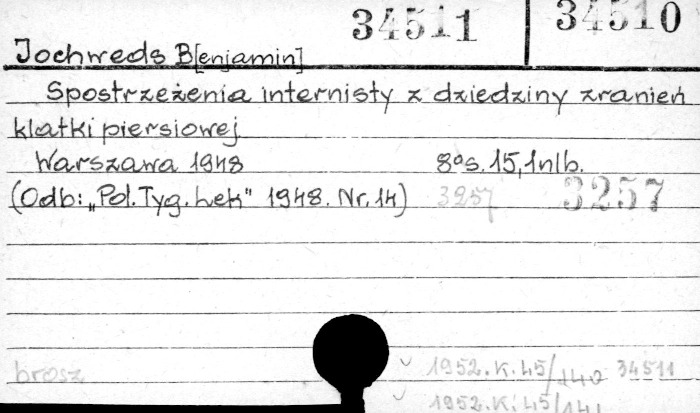 34511 34510
Jochweds B[enjamin]
Spostrzeżenia internisty z dziedziny zranień
klatki piersiowej
Warszawa 1948 8°s. 15, 1nlb.
(Odb: „Pol. Tyg. Lek" 1948. Nr. 14) 3257 3257
brosz 1952.K.45/140 34511
1952.K.45/141